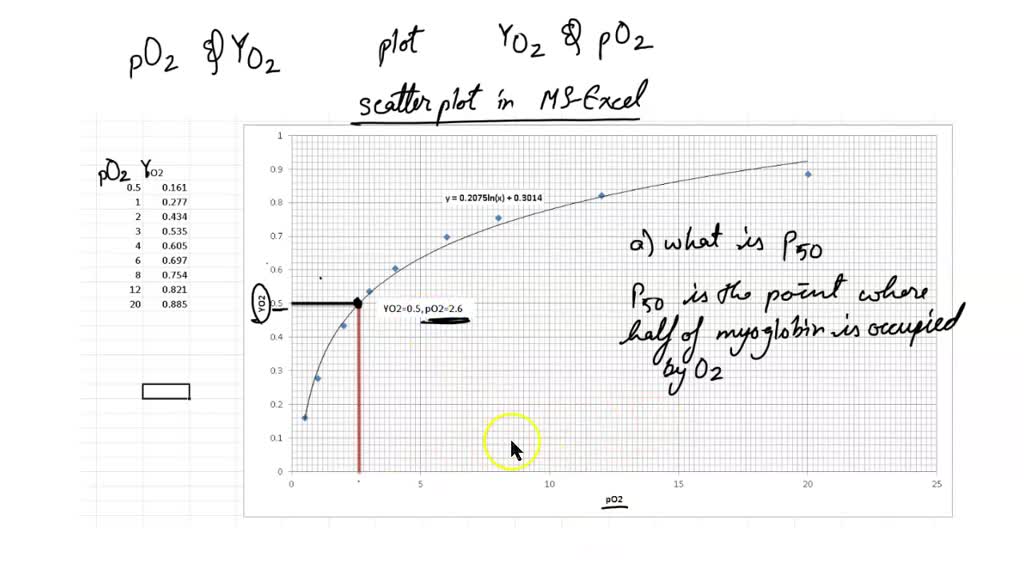 pO2 & YO2 plot YO2 & pO2
scatter plot in MS-Excel
pO2 YO2
0.5 0.161
1 0.277
2 0.434
3 0.535
4 0.605
6 0.697
8 0.754
12 0.821
20 0.885
1
0.9
0.8
0.7
0.6
0.5
0.4
0.3
0.2
0.1
0
YO2
y = 0.2075ln(x) + 0.3014
YO2=0.5, pO2=2.6
a) what is P50
P50 is the point where
half of myoglobin is occupied
by O2
0 5 10 15 20 25
pO2